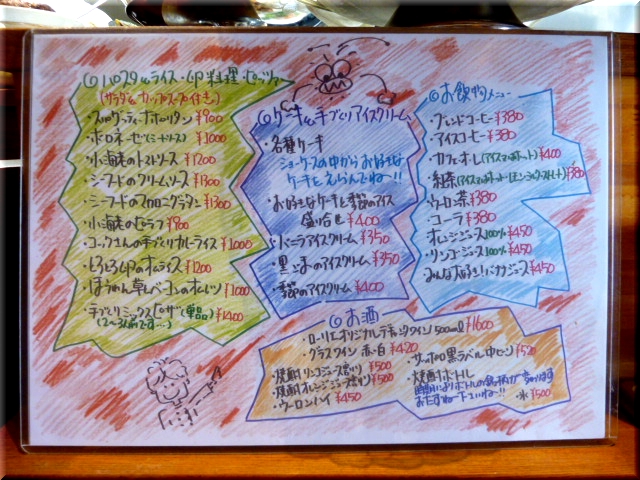 ◎パスタ&ライス・一品料理・ピッツァ
(サラダ&カップスープ付き)
・スパゲッティーナポリタン ¥900
・ボロネーゼ(ミートソース) ¥1000
・小海老のトマトソース ¥1200
・シーフードのクリームソース ¥1300
・シーフードのマカロニグラタン ¥1300
・小海老のピラフ ¥900
・コックさんの手づくりカレーライス ¥1000
・とろとろ卵のオムライス ¥1200
・ほうれん草とベーコンのオムレツ ¥1000
・手づくりミックスピザ(単品) ¥1400
(2〜3人前です…)
◎ケーキ&手づくりアイスクリーム
・各種ケーキ
ショーケースの中からお好きな
ケーキをえらんでね〜!!
・お好きなケーキと季節のアイス
盛り合せ ¥400
・バニラアイスクリーム ¥350
・黒ごまのアイスクリーム ¥350
・季節のアイスクリーム ¥400
◎お飲物メニュー
・ブレンドコーヒー ¥380
・アイスコーヒー ¥380
・カフェオレ(アイスorホット) ¥400
・紅茶(アイスorホット・レモン・ミルク・ストレート) ¥380
・ウーロン茶 ¥380
・コーラ ¥380
・オレンジジュース100% ¥450
・リンゴジュース100% ¥450
・みんな大好き!バナナジュース ¥450
◎お酒
・ローリエオリジナルラベル ワイン500ml ¥1600
・グラスワイン 赤・白 ¥420
・焼酎リンゴジュース割り ¥500
・焼酎オレンジジュース割り ¥500
・ウーロンハイ ¥450
・サッポロ黒ラベル中ビン ¥520
・焼酎ボトル
時期によりボトルの銘柄が
おたずね下さいね〜!!
・氷 ¥500